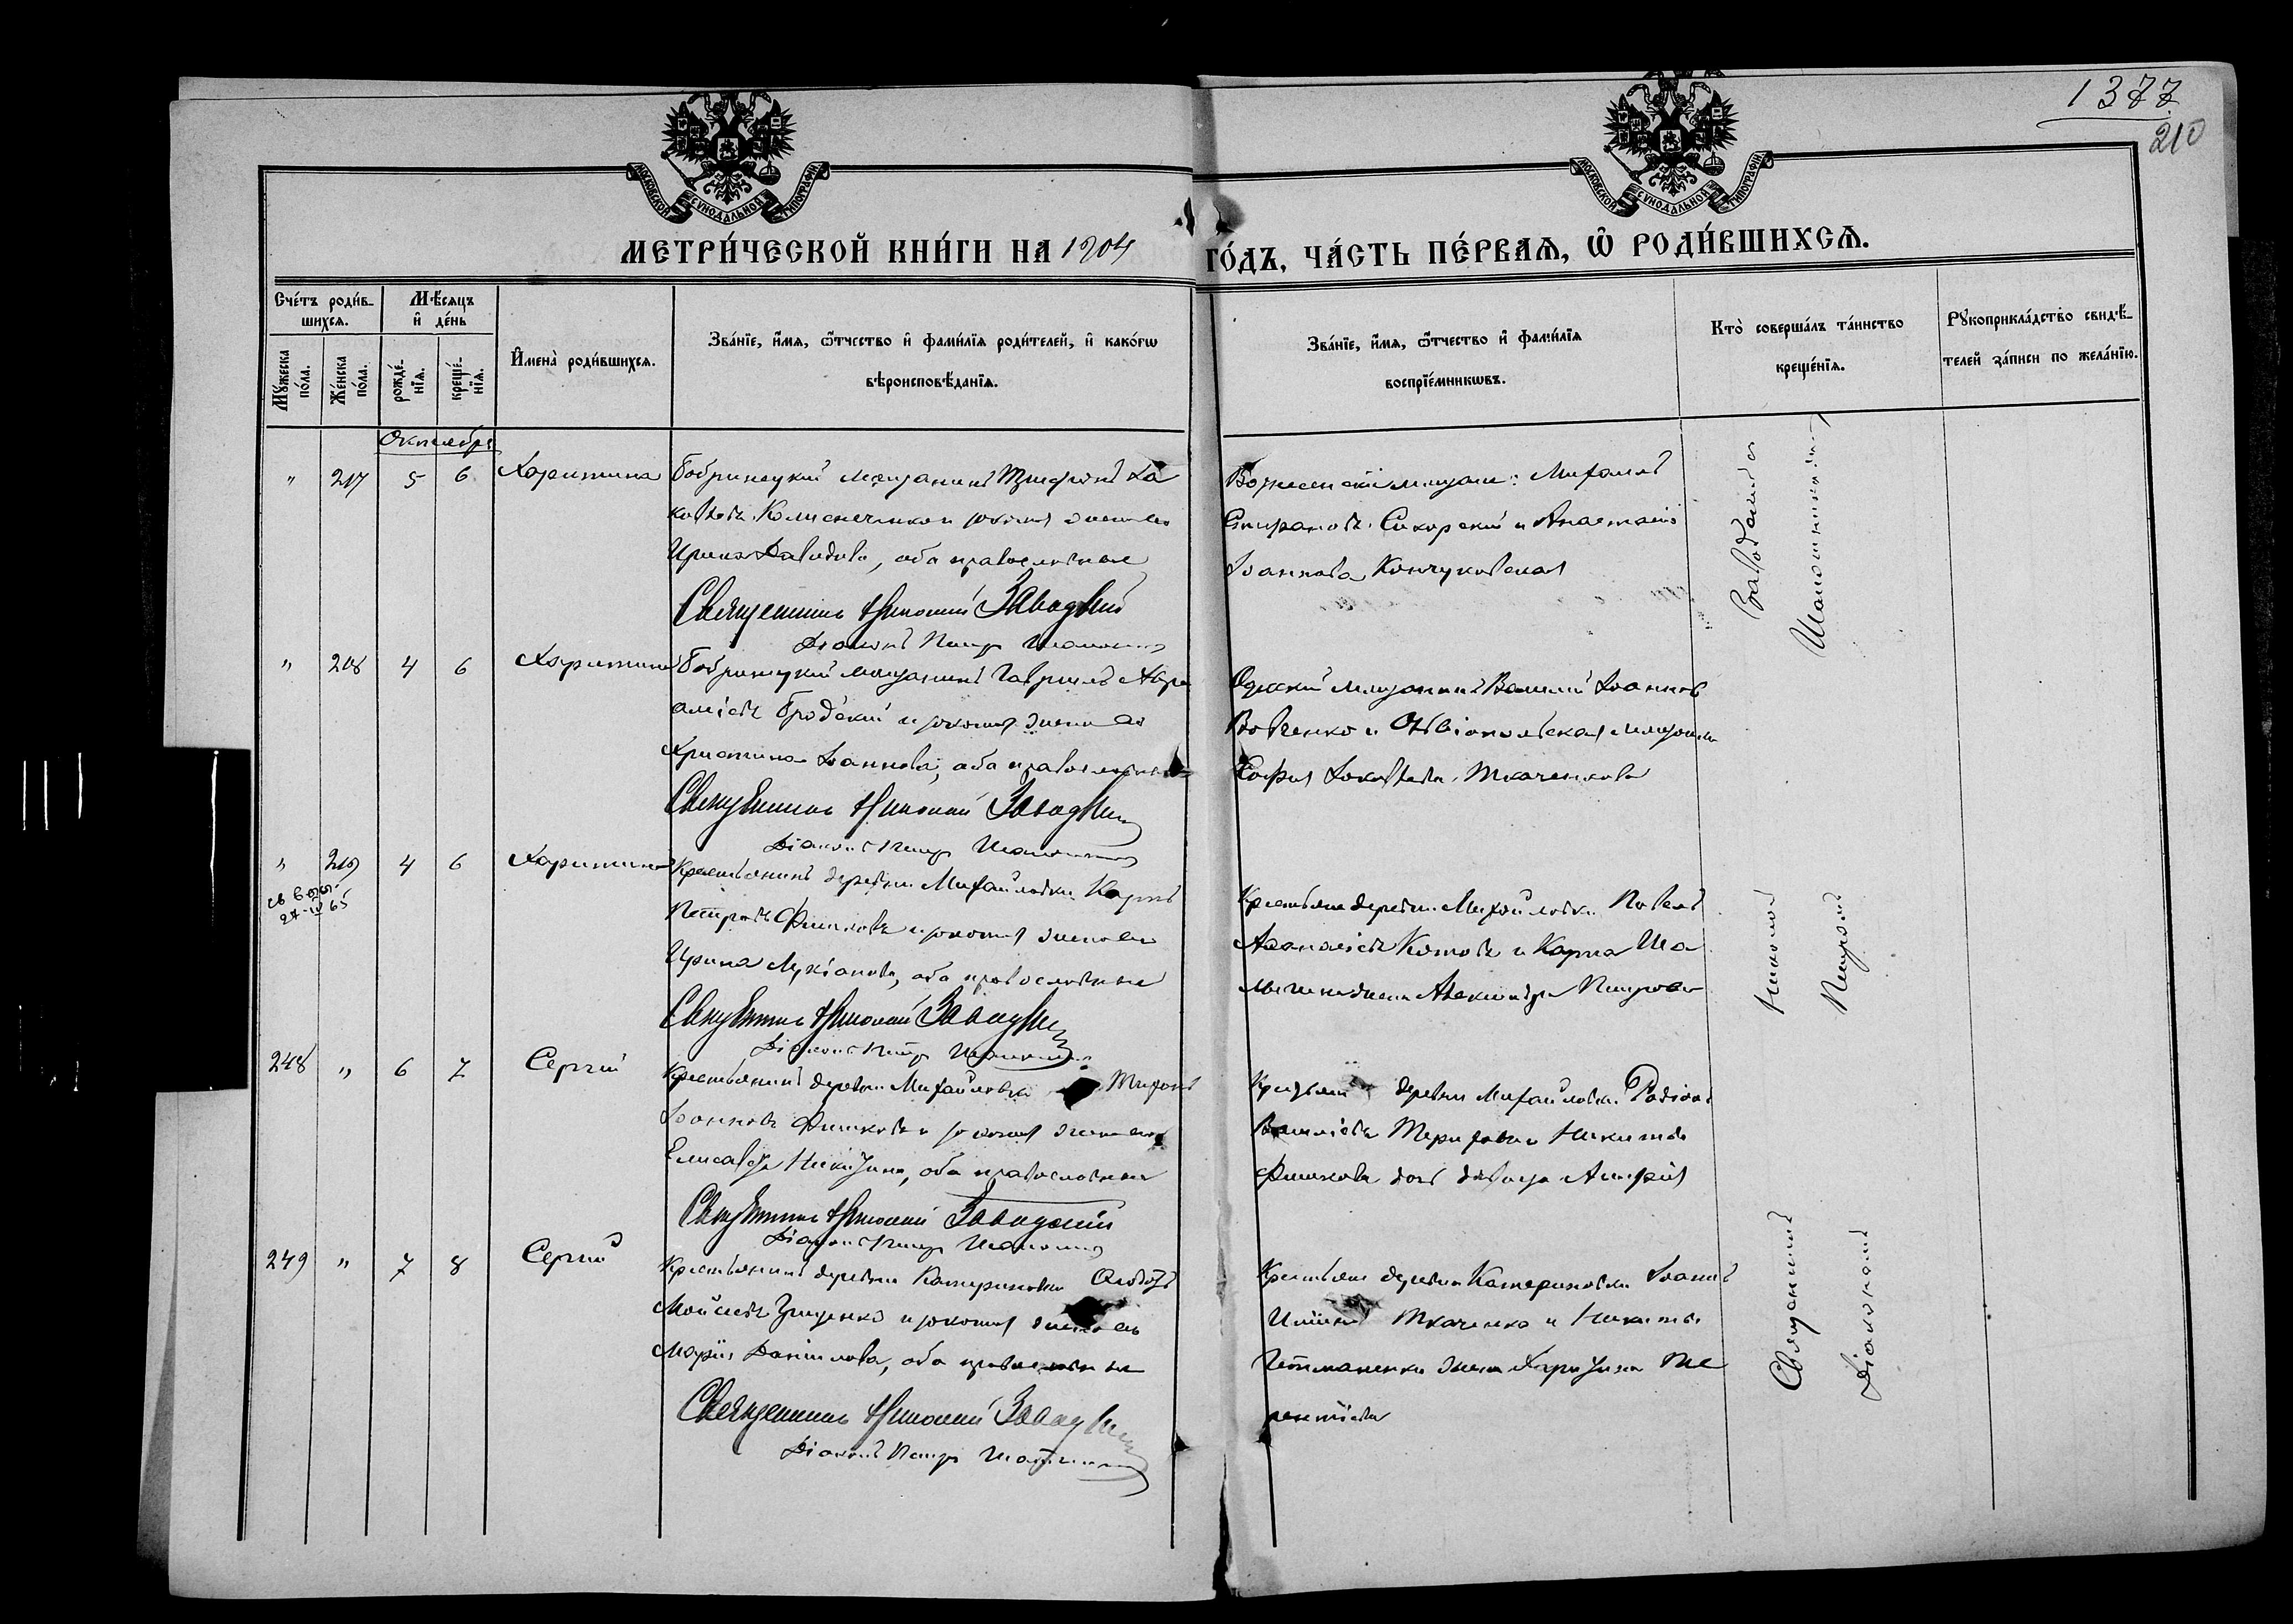 1377
210
МОСКОВСКОЙ СѴНОДАЛЬНОЙ ТИПОГРАФІИ
МОСКОВСКОЙ СѴНОДАЛЬНОЙ ТИПОГРАФІИ
МЕТРИ́ЧЕСКОЙ КНИ́ГИ НА 1904 ГО́ДЪ, ЧА́СТЬ ПЕ́РВАѦ, Ѡ҆ РОДИ́ВШИХСѦ.
Сче́тъ роди́в-
шихсѧ.
Мꙋ́жеска по́ла.
Же́нска по́ла.
Мѣ́сѧцъ
и҆ де́нь
рожде́нїѧ.
креще́нїѧ.
И҆мена̀ роди́вшихсѧ.
Зва́нїе, и҆́мѧ, ѻ҆́тчество и҆ фами́лїѧ роди́телей, и҆ како́гѡ
вѣроисповѣ́данїѧ.
Зва́нїе, и҆́мѧ, ѻ҆́тчество и҆ фами́лїѧ
воспрїе́мникѡвъ.
Кто̀ соверша́лъ та́инство
креще́нїѧ.
Рꙋкоприкла́дство свидѣ́-
телей за́писи по жела́нїю.
Октября
" 217 5 6 Харитина
Бобринецкій мѣщанинъ Трифонъ Іа
ковлевъ Колисниченко и законная жена его
Ирина Давидова, оба православные
Священникъ Николай Завадскій
Діаконъ Петръ
Вознесенскіе мѣщане: Михаилъ
Спиридоновъ Сикорскій и Анастасія
Іоаннова Кончуковская
" 218 4 6 Харитина
Бобринецкій мѣщанинъ Гавріилъ Авра
аміевъ Бродскій и законная жена его
Христина Іоаннова, оба православные
Священникъ Николай Завадскій
Діаконъ Петръ
Одесскій мѣщанинъ Василій Іоанновъ
Вовченко и Ольвіопольская мѣщанка
Софія Іаковлева Ткаченкова
" 219 4 6 Харитина
24-IV 65
Крестьянинъ деревни Михайловки Карпъ
Петровъ Фишковъ и законная жена его
Ирина Лукіанова, оба православные
Священникъ Николай Завадскій
Діаконъ Петръ
Крестьяне деревни Михайловки Павелъ
Аѳанасіевъ Котовъ и Карпа Ша
жена Александра Петрова
248 " 6 7 Сергій
Крестьянинъ деревни Михайловки Тихонъ
Іоанновъ Фишковъ и законная жена его
Елисавета Никитина, оба православные
Священникъ Николай Завадскій
Діаконъ Петръ
деревни Михайловки Родіонъ
Васильевъ и Никиты
Фишкова дочь дѣвица
249 " 7 8 Сергій
Крестьянинъ деревни Катериновки
Мойсеевъ Грищенко и законная жена его
Марія Даніилова, оба православные
Священникъ Николай Завадскій
Діаконъ Петръ
Крестьяне деревни Катериновки Іоаннъ
Ткаченко и Никиты
Гетманенка жена Харитина Те
рентіева
Священникъ Николай Завадскій
Діаконъ Петръ